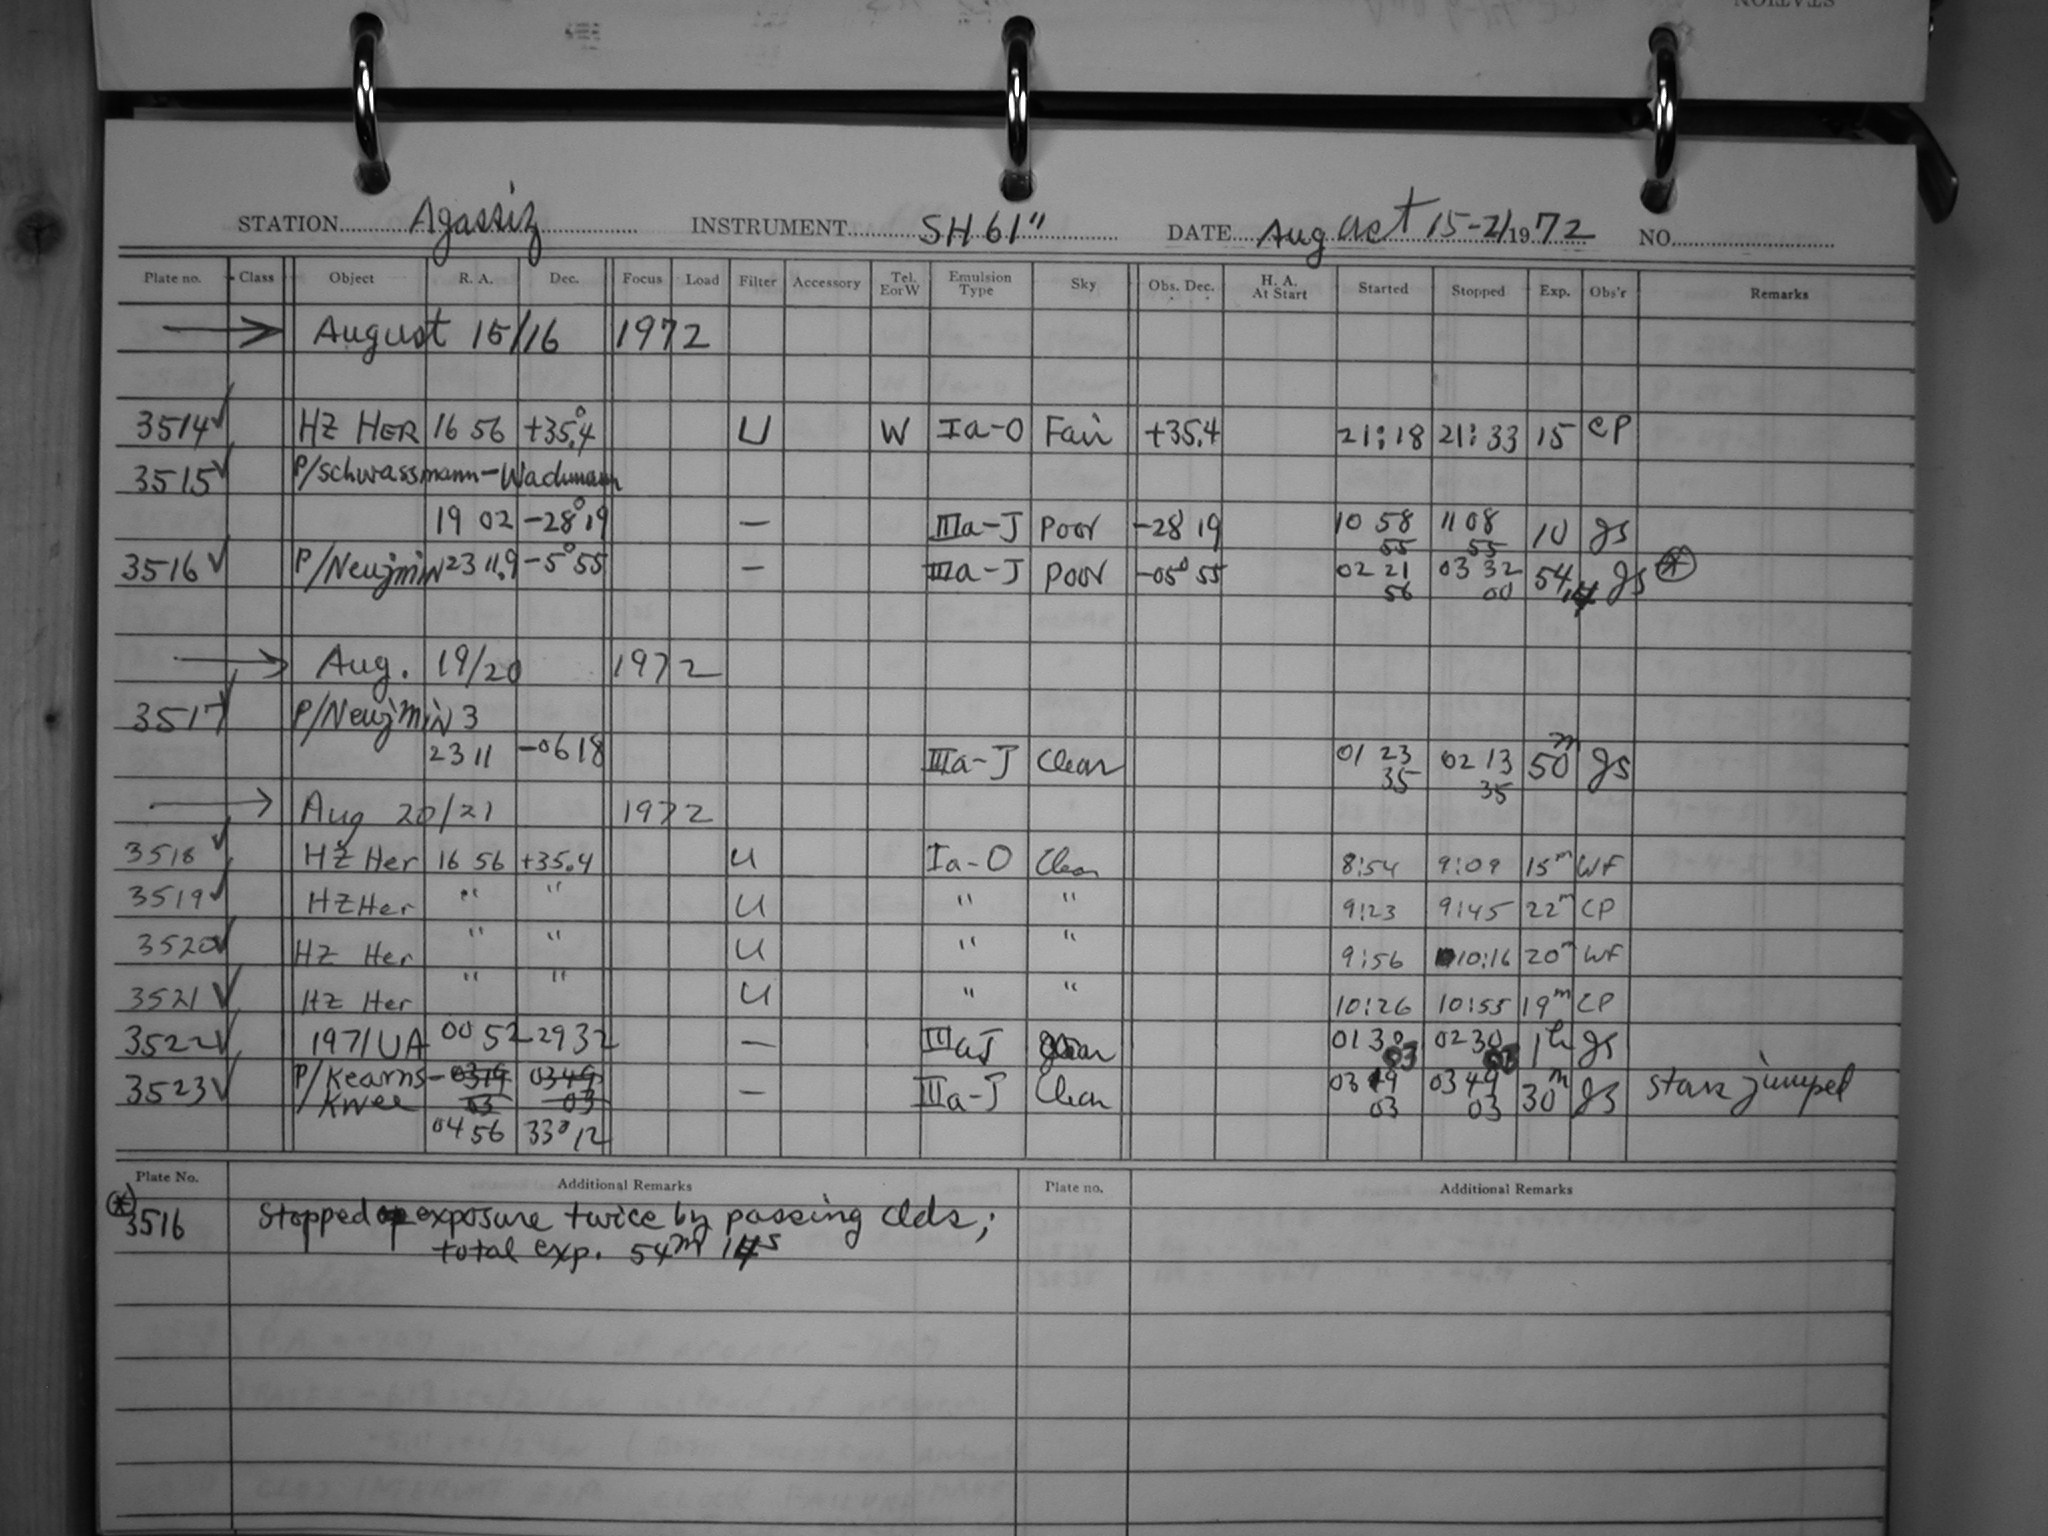 STATION Agassiz INSTRUMENT SH 61" DATE August 15-21 1972 NO.
Plate no. Class Object R. A. Dec. Focus Load Filter Accessory Tel. E or W Emulsion Type Sky Obs. Dec. H. A. At Start Started Stopped Exp. Obs'r Remarks
→ August 15/16 1972
3514✓ HZ HER 16 56 +35°.4 U W Ia-O Fair +35.4 21:18 21:33 15 CP
3515✓ P/Schwassmann-Wachmann
19 02 -28°19 — IIIa-J Poor -28 19 10 58 55 11 08 55 10 JS
3516✓ P/Neujmin 23 11.9 -5°55 — IIIa-J Poor -05° 55 02 21 56 03 32 00 54 JS *
→ Aug. 19/20 1972
3517✓ P/Neujmin 3
23 11 -06 18 IIIa-J Clear 01 23 35 02 13 35 50m JS
→ Aug 20/21 1972
3518✓ HZ Her 16 56 +35.4 U Ia-O Clear 8:54 9:09 15m WF
3519✓ HZ Her " " U " " 9:23 9:45 22m CP
3520✓ HZ Her " " U " " 9:56 10:16 20m WF
3521✓ HZ Her " " U " " 10:26 10:55 19m CP
3522✓ 1971 UA 00 52 -29 32 — IIIaJ 01 30 03 02 30 03 1h JS
3523✓ P/Kearns-Kwee 0319 03 0349 03 — IIIa-J Clear 03 19 03 03 49 03 30m JS stars jumped
04 56 33°12
Plate No. Additional Remarks Plate no. Additional Remarks
* 3516 Stopped exposure twice by passing clds;
total exp. 54m 14s